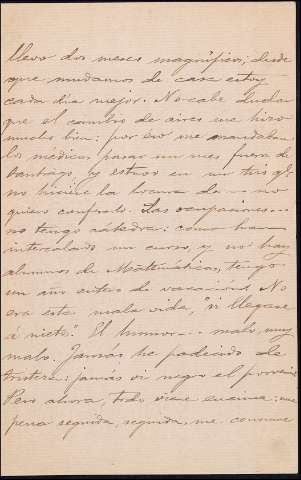 llevo dos meses magníficos; desde
que mudamos de casa estoy
cada día mejor. No cabe dudar
que el cambio de aires me hizo
mucho bien: por eso me mandaban
los médicos pasar un mes fuera de
Santiago, y estuvo en un tris q.
no hiciese la locura de... no
quiero confesarlo. Las ocupaciones...
no tengo cátedra: como han
intercalado un curso, y no hay
alumnos de Matemáticas, tengo
un año entero de vacaciones. No
era esta mala vida, "si llegase
á nieto". El humor... malo, muy
malo. Jamás he padecido de
tristeza: jamás vi negro el porvenir
Pero ahora, todo viene encima: una
pena seguida, seguida, me consume